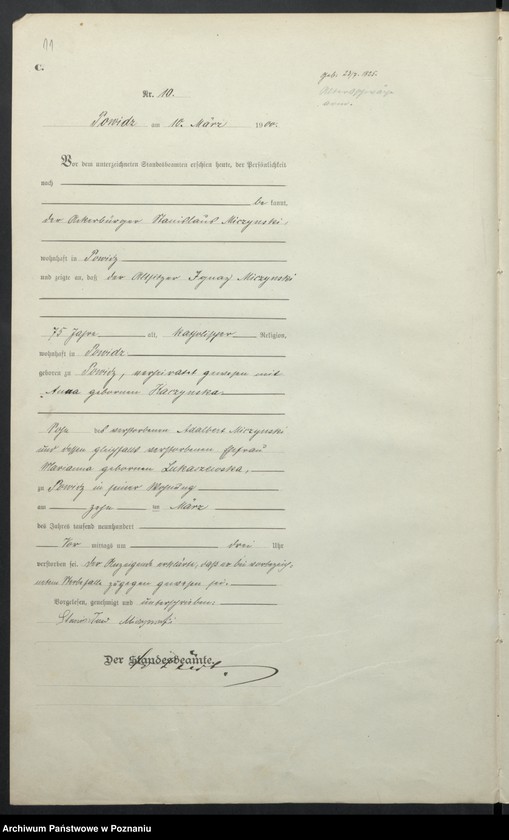 11
C.
geb. 23/7. 1825.
Nr. 10.
Powidz am 10. März 1900.
Vor dem unterzeichneten Standesbeamten erschien heute, der Persönlichkeit
nach
be kannt,
der Ackerbürger Stanislaus Miczynski,
wohnhaft in Powidz
und zeigte an, daß der Altsitzer Ignaz Miczynski
75 Jahre alt, katholischer Religion,
wohnhaft in Powidz
geboren zu Powidz, verheiratet gewesen mit
Anna geborenen Kaczynska.
Sohn des verstorbenen Adalbert Miczynski
und dessen gleichfalls verstorbenen Ehefrau
Marianna geborenen Lukaszewska,
zu Powidz in seiner Wohnung
am zehn ten März
des Jahres tausend neunhundert
Vor mittags um drei Uhr
verstorben sei. Der Anzeigende erklärte, daß er bei vorbezeich,
netem Sterbefalle zugegen gewesen sei.
Vorgelesen, genehmigt und unterschrieben.
Stanislaus Miczynski
Der Standesbeamte.
Archiwum Państwowe w Poznaniu